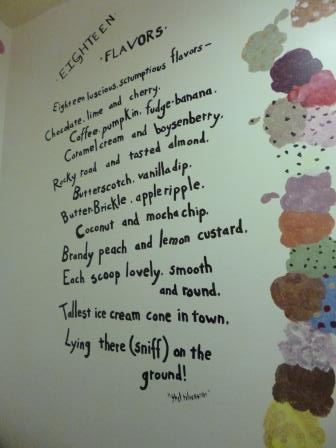 EIGHTEEN
FLAVORS.
Eighteen luscious. scrumptious flavors—
Chocolate. lime and cherry.
Coffee. pumpkin. fudge-banana.
Caramel cream and boysenberry.
Rocky road and tosted almond.
Butterscotch. vanilla dip.
Butter-Brickle. apple ripple.
Coconut and mocha chip.
Brandy peach and lemon custard.
Each scoop lovely. smooth
and round.
Tallest ice cream cone in town.
Lying there (sniff) on the
ground!